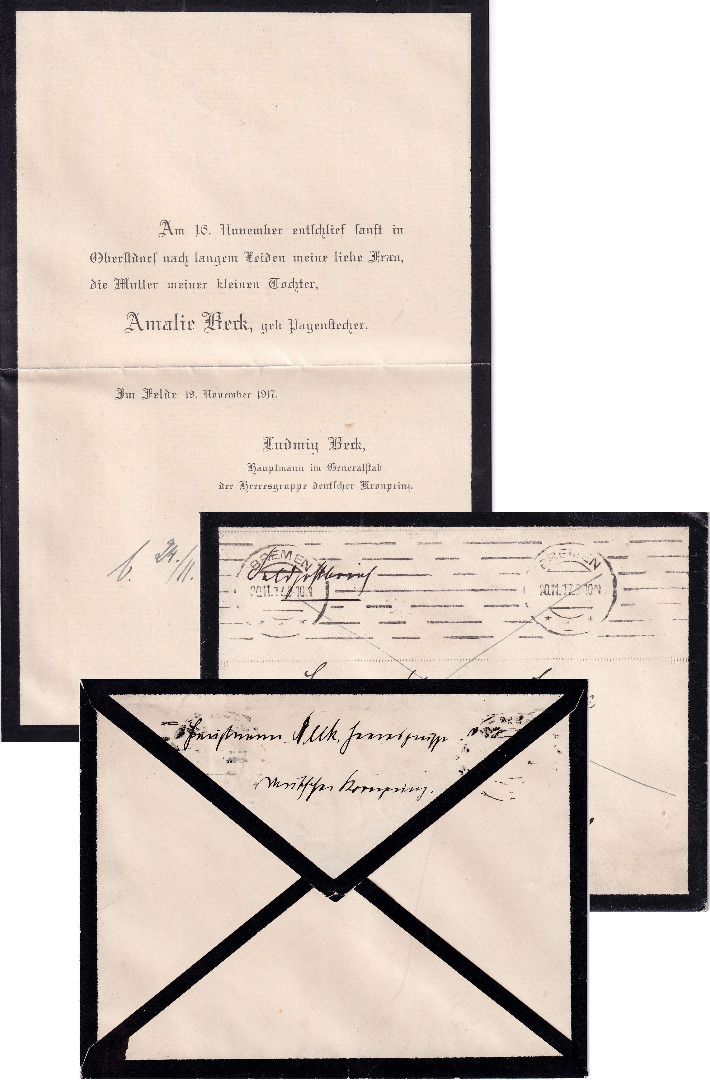 Am 16. November entschlief sanft in
Oberstdorf nach langem Leiden meine liebe Frau,
die Mutter meiner kleinen Tochter,
Amalie Beck, geb Pagenstecher.
Im Felde 19. November 1917.
Ludwig Beck,
Hauptmann im Generalstab
der Heeresgruppe deutscher Kronprinz.
24/11.
BREMEN
BREMEN
Feldpostbrief
Hauptmann Beck, Heeresgruppe
Deutscher Kronprinz.